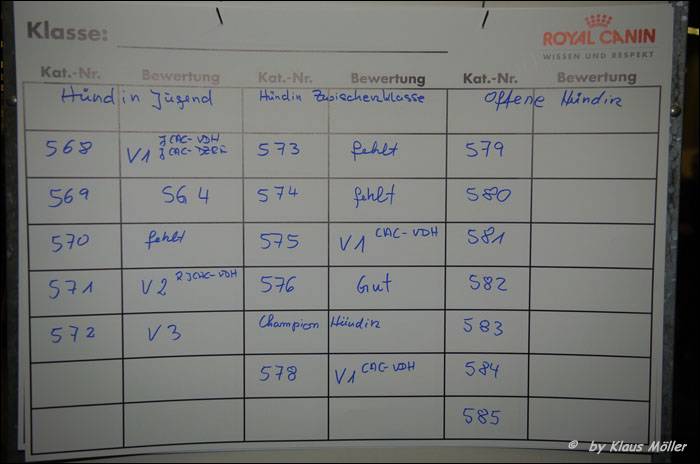 Klasse:
ROYAL CANIN
WISSEN UND RESPEKT
Kat.-Nr. Bewertung Kat.-Nr. Bewertung Kat.-Nr. Bewertung
Hündin Jugend Hündin Zwischenklasse Offene Hündin
JCAC-VDH
568 V1 573 fehlt 579
569 SG 4 574 fehlt 580
570 fehlt 575 V1 CAC-VDH 581
571 V2 RJCAC-VDH 576 Gut 582
572 V3 Champion Hündin 583
578 V1 CAC-VDH 584
585
© by Klaus Möller